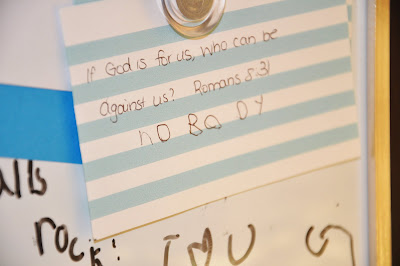 If God is for us, who can be
against us? Romans 8:31
no BO DY
alls
rock!
I
U